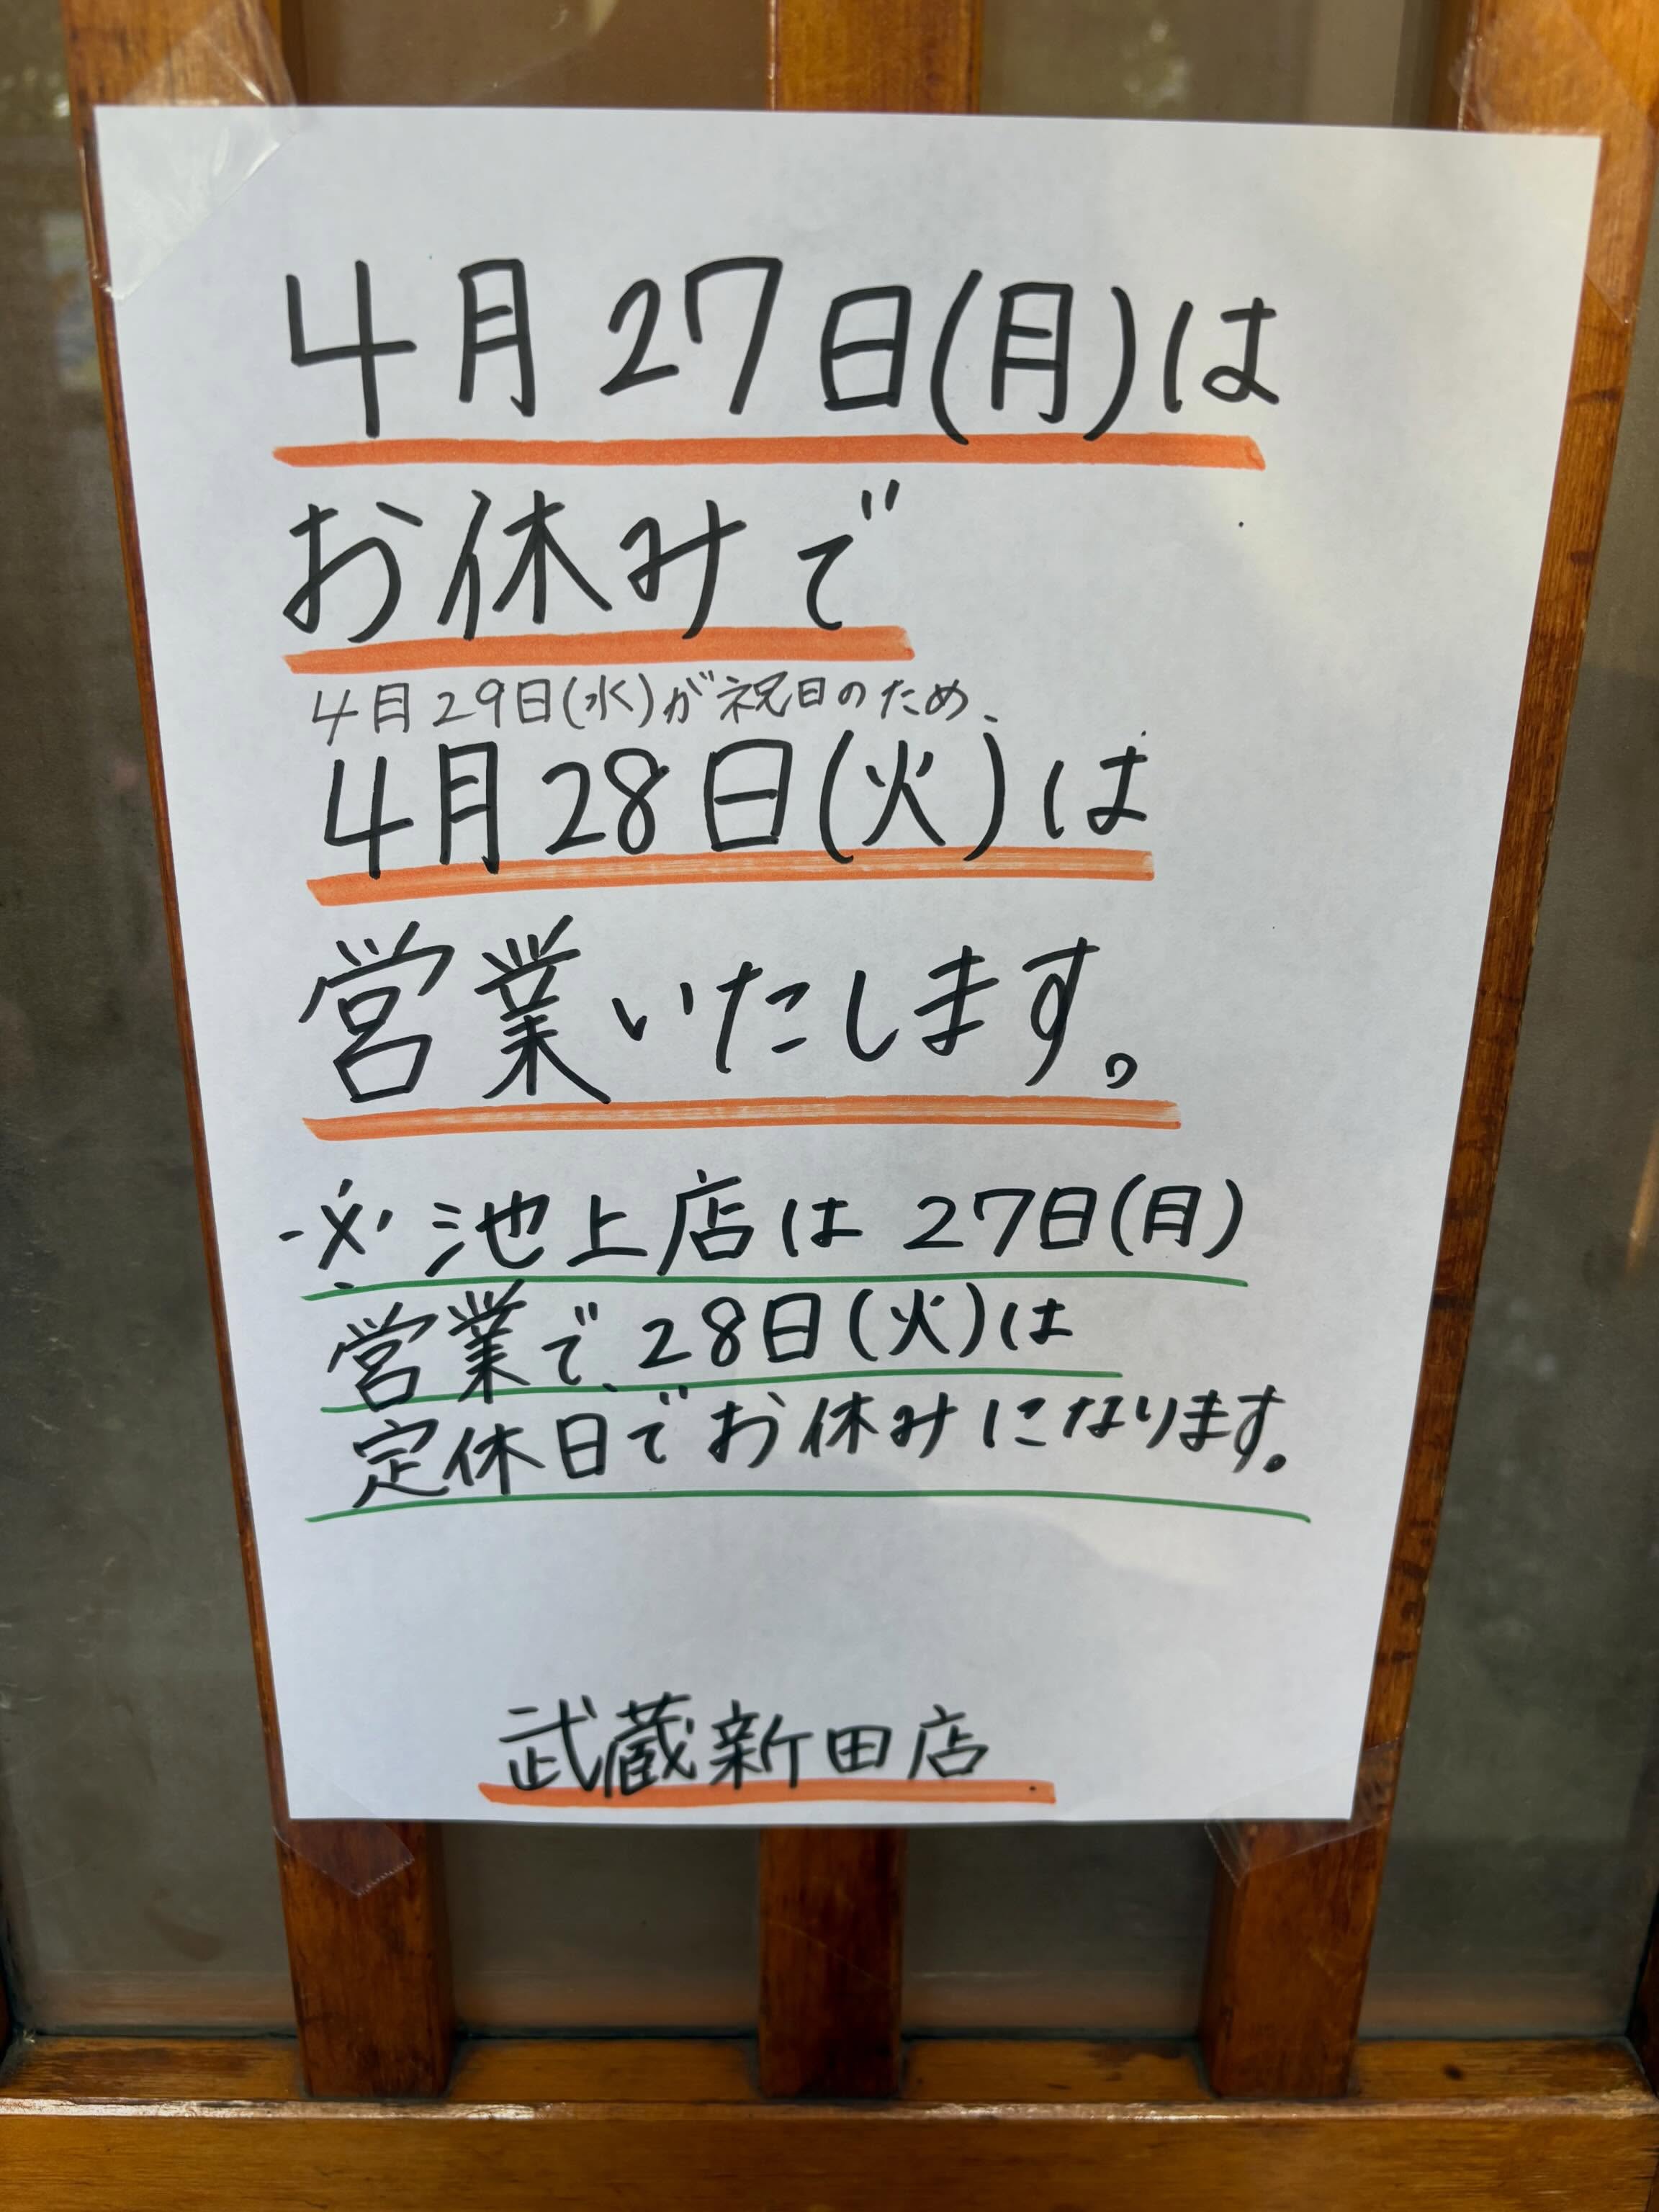 4月27日(月)は
お休みで
4月29日(水)が祝日のため、
4月28日(火)は
営業いたします。
※池上店は27日(月)
営業で、28日(火)は
定休日でお休みになります。
武蔵新田店